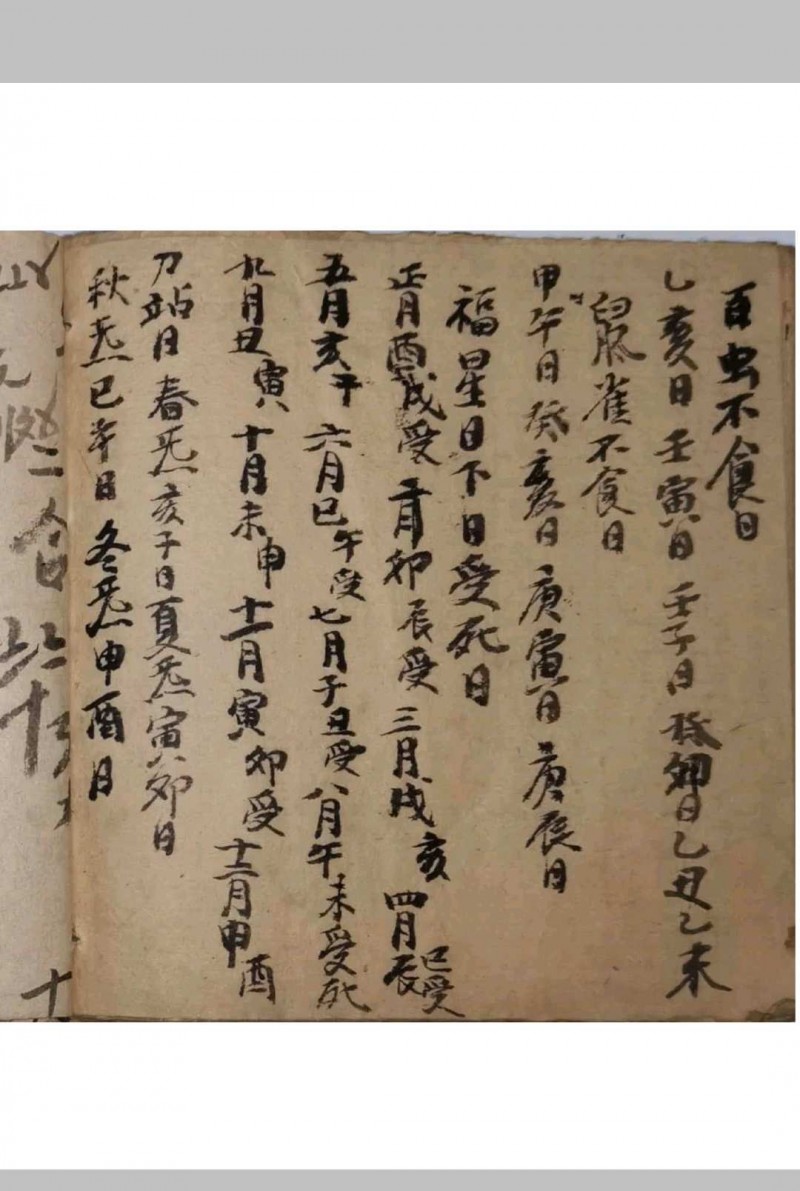 百虫不食日
乙亥日 壬寅日 壬子日 癸卯日 乙丑 乙未
鼠雀不食日
甲午日 癸亥日 庚寅日 庚辰日
福星日下日受死日
正月酉戌受 二月卯辰受 三月戌亥 四月辰巳受
五月亥子 六月巳午受 七月子丑受 八月午未受死
九月丑寅 十月未申 十一月寅卯受 十二月申酉
刀站日 春忌亥子日 夏忌寅卯日
秋忌巳午日 冬忌申酉日